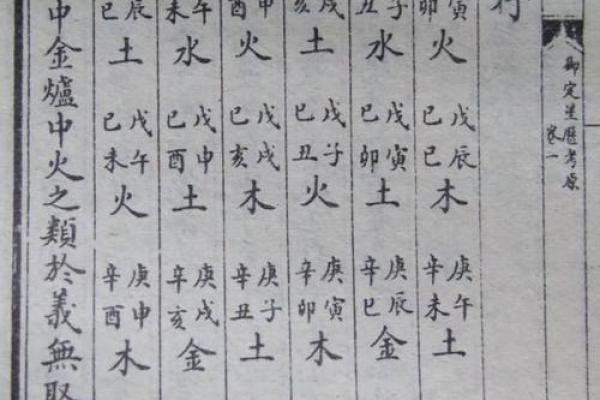 御定星歷考原
卷一
行
寅卯火戊辰己巳木庚午辛未土
子丑水戊寅己卯土庚辰辛巳金
戌亥土戊子己丑火庚寅辛卯木
申酉火戊戌己亥木庚子辛丑土
午未水戊申己酉土庚戌辛亥金
辰巳土戊午己未火庚申辛酉木
中金爐中火之類於義無取